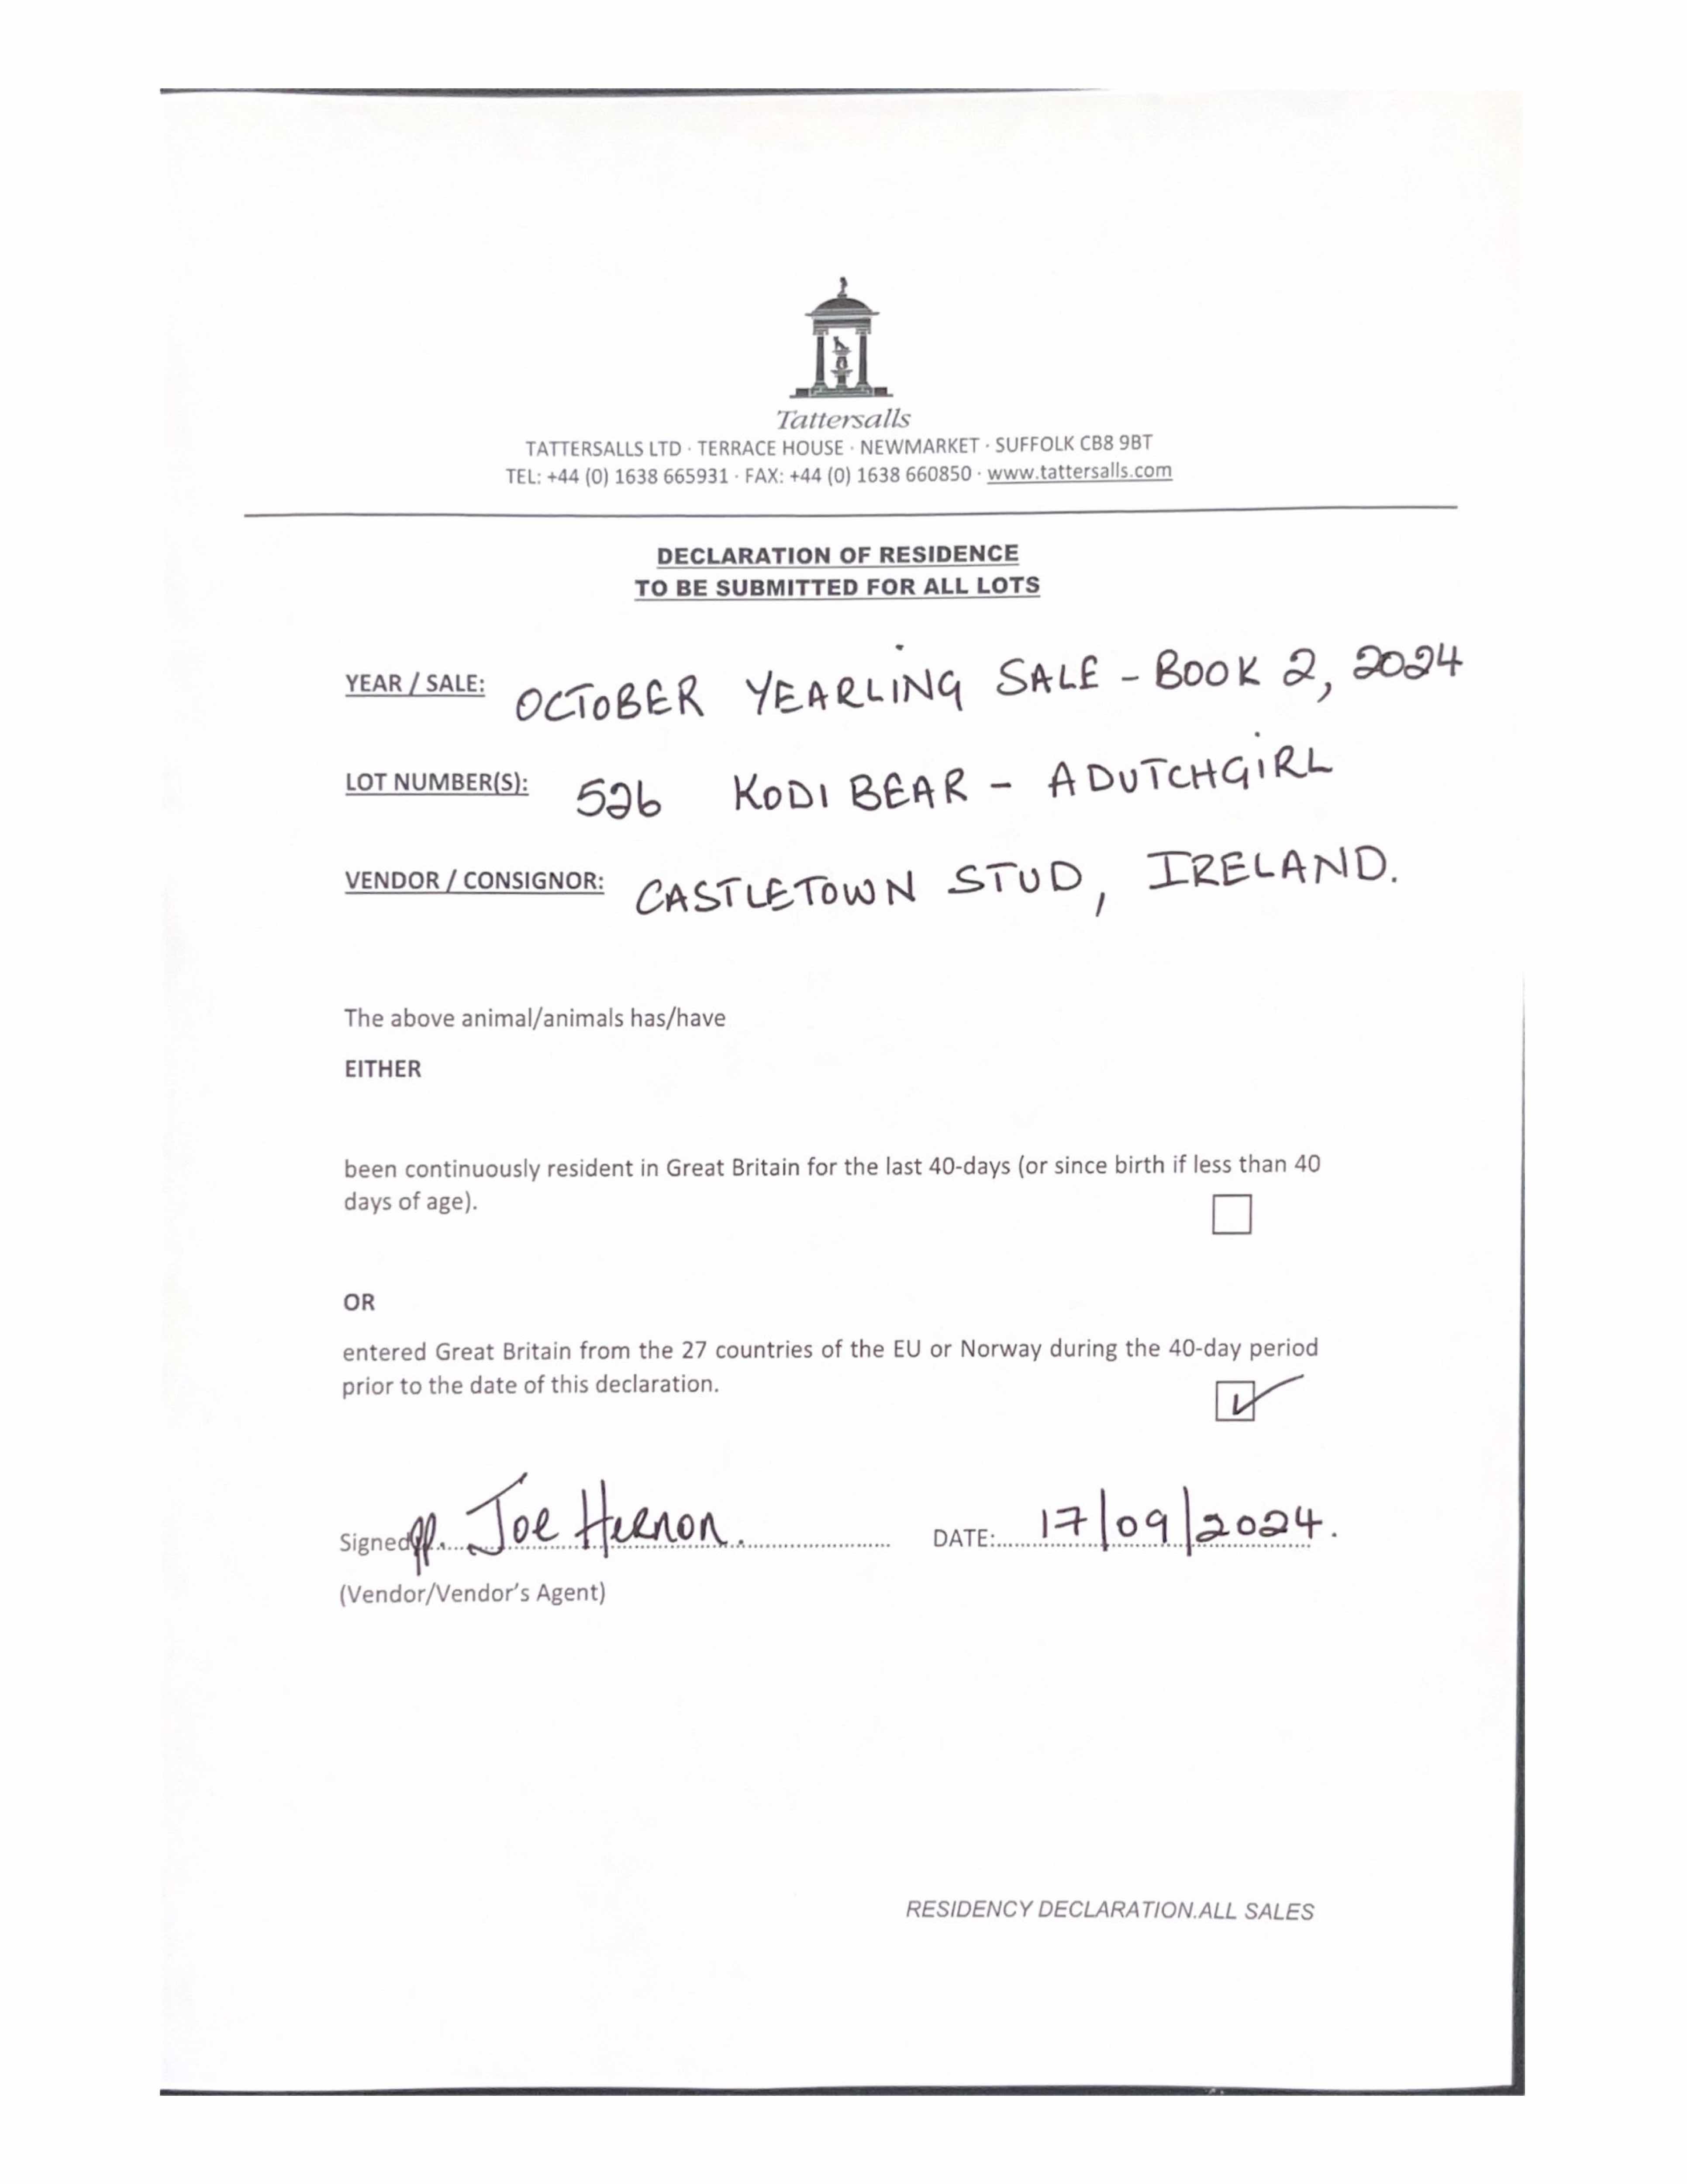 Tattersalls
TATTERSALLS LTD · TERRACE HOUSE · NEWMARKET · SUFFOLK CB8 9BT
TEL: +44 (0) 1638 665931 · FAX: +44 (0) 1638 660850 · www.tattersalls.com
DECLARATION OF RESIDENCE
TO BE SUBMITTED FOR ALL LOTS
YEAR / SALE: OCTOBER YEARLING SALE - BOOK 2, 2024
LOT NUMBER(S): 526 KODI BEAR - ADUTCHGIRL
VENDOR / CONSIGNOR: CASTLETOWN STUD, IRELAND.
The above animal/animals has/have
EITHER
been continuously resident in Great Britain for the last 40-days (or since birth if less than 40
days of age).
OR
entered Great Britain from the 27 countries of the EU or Norway during the 40-day period
prior to the date of this declaration.
Signed pp. Joe Hernon. DATE: 17/09/2024.
(Vendor/Vendor's Agent)
RESIDENCY DECLARATION.ALL SALES